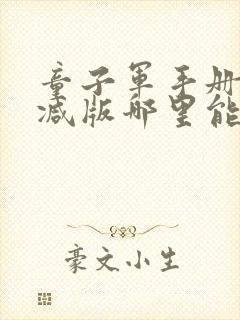 童子軍手册
减版哪里能
豪文小生